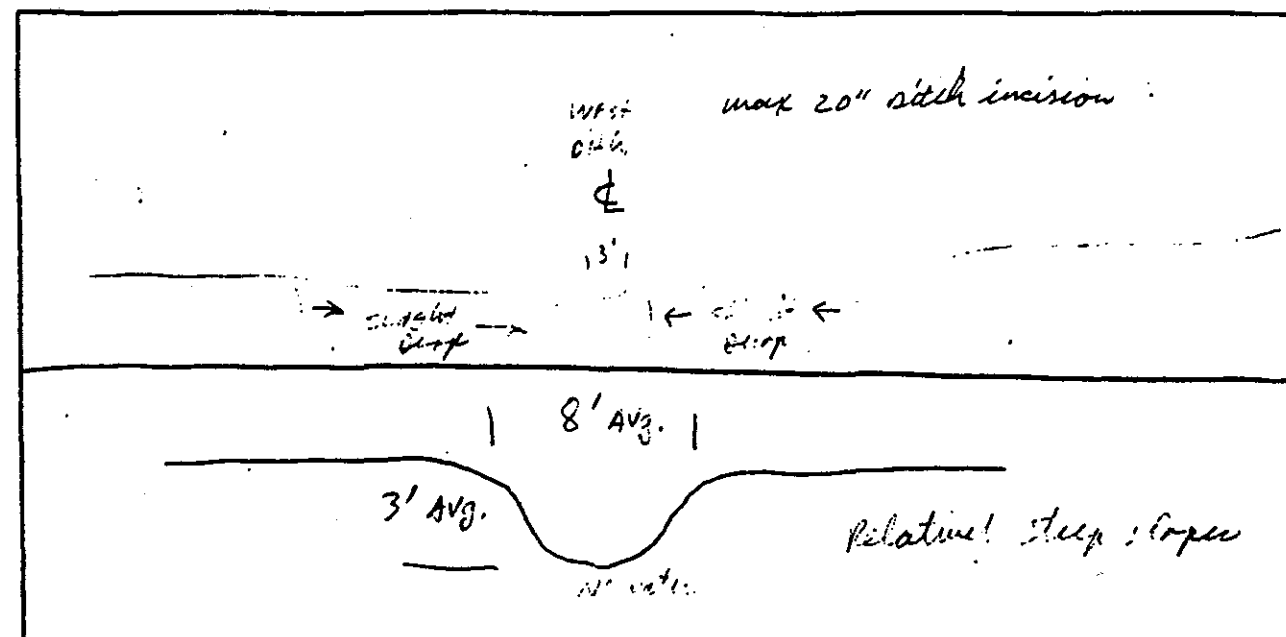 max 20" ditch incision
West
ditch
℄
3'
slight
slope
slope
8' Avg.
3' Avg.
Relative steep slopes